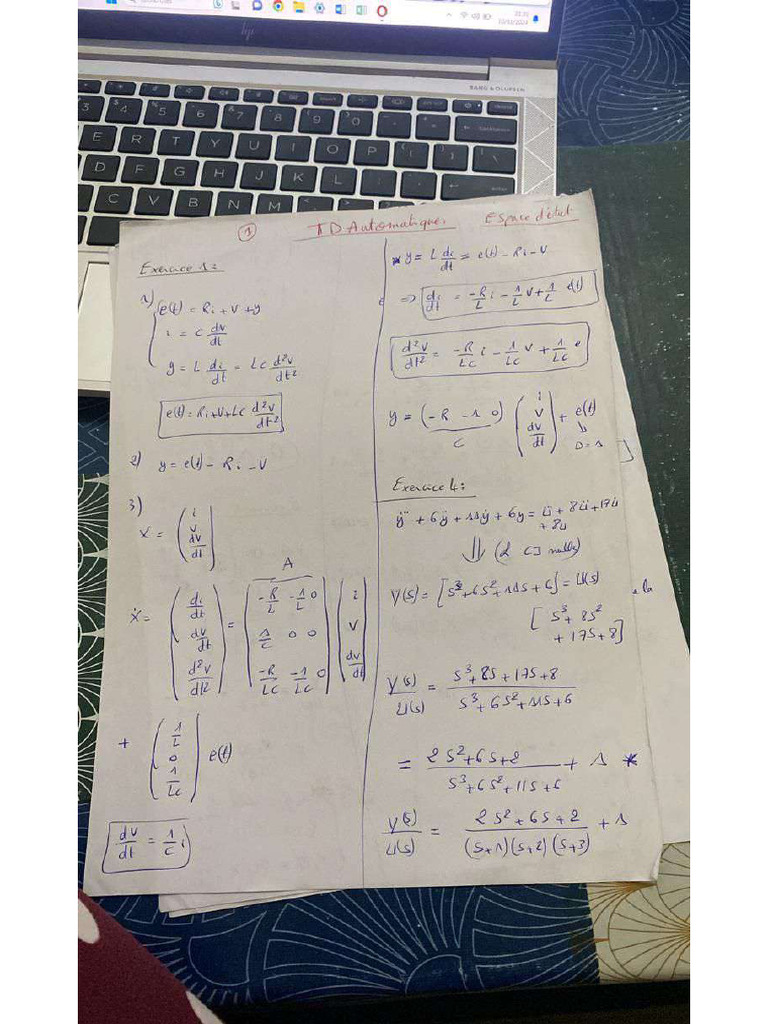 hp
BANG & OLUFSEN
E R T Y U I O P
D F G H J K L
C V B N M
1 TD Automatique. Espace d'état
Exercice 1:
1) e(t) = Ri + V + y
i = C dv/dt
y = L di/dt = LC d²v/dt²
e(t) = Ri + V + LC d²v/dt²
2) y = e(t) - Ri - V
3)
X = ( i
v
dv/dt )
A
Ẋ = ( di/dt
dv/dt
d²v/dt² ) = ( -R/L -1/L 0
1/C 0 0
-R/LC -1/LC 0 ) ( i
v
dv/dt )
+ ( 1/L
0
1/LC ) e(t)
dv/dt = 1/C i
* y = L di/dt = e(t) - Ri - V
=> di/dt = -R/L i - 1/L V + 1/L e(t)
d²v/dt² = -R/LC i - 1/LC V + 1/LC e
y = (-R -1 0) ( i
v
dv/dt ) + e(t)
C
D = 1
Exercice 4:
y⃛ + 6ÿ + 11ẏ + 6y = u⃛ + 8ü + 17u̇
+ 8u
⇓ (2 CI nulles)
Y(s) = [s³ + 6s² + 11s + 6] = U(s)
[s³ + 8s²
+ 17s + 8]
Y(s)/U(s) = s³ + 8s + 17s + 8 / s³ + 6s² + 11s + 6
= 2s² + 6s + 2 / s³ + 6s² + 11s + 6 + 1 *
Y(s)/U(s) = 2s² + 6s + 2 / (s+1)(s+2)(s+3) + 1